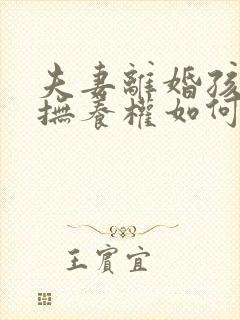 夫妻離婚孩
撫養權如何
王賓宜